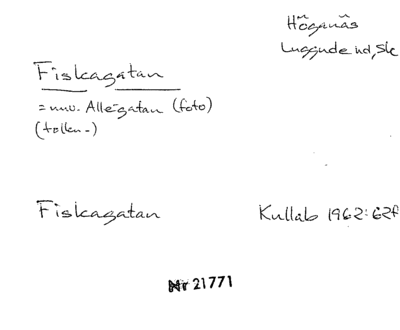 Höganäs
Luggude hd, Sk
Fiskagatan
= nuv. Allégatan (foto)
(tolkn-)
Fiskagatan Kullab 1962: 62f
Nr 21771